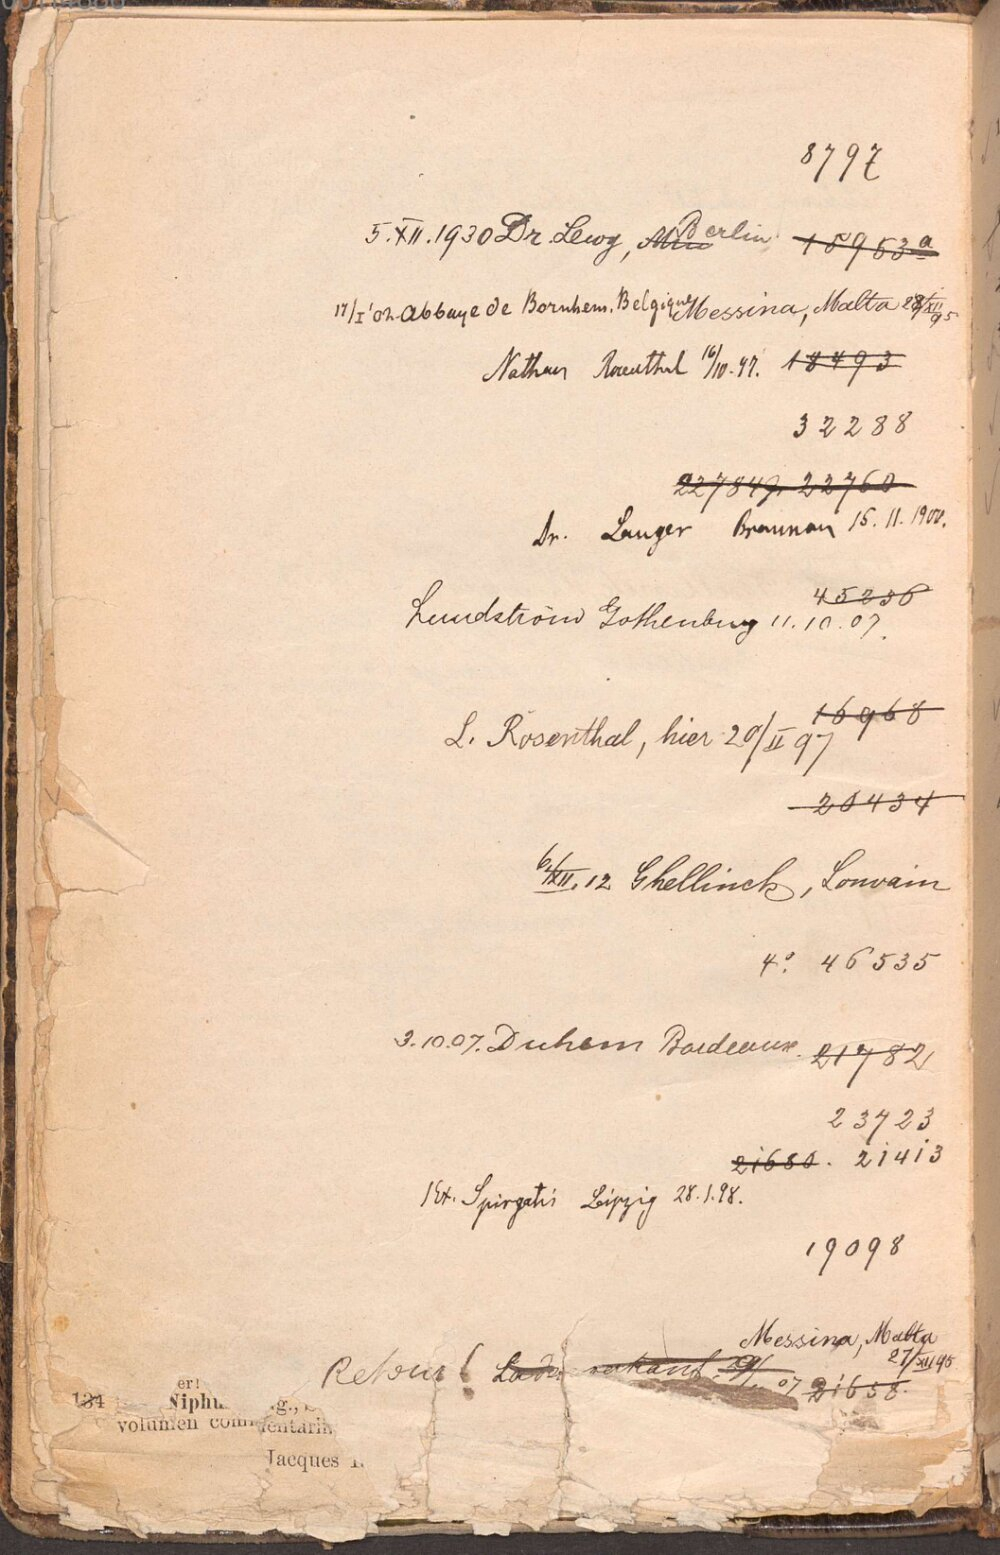 8797
5.XII.1930 Dr. Lewy, Berlin 15953a
17/I'02 Abbaye de Bornhem. Belgique Messina, Malta 28/XII 95
Nathan Rosenthal 16/10.97. 18493
32288
22784 22760
Dr. Langer Braunau 15. 11. 1900.
45236
Lundström Gothenburg 11.10.07.
16968
L. Rosenthal, hier 20/II 97
20434
6/XII. 12 Ghellinck, Louvain
4° 46535
3.10.07. Duhem Bordeaux. 21782
23723
21680. 21413
1 Ex. Spirgatis Leipzig 28.1.98.
19098
Messina, Malta
27/XII 95
Retour! 07 21658.
er!
134 Niphu g.,
volumen comm entarin
Jacques